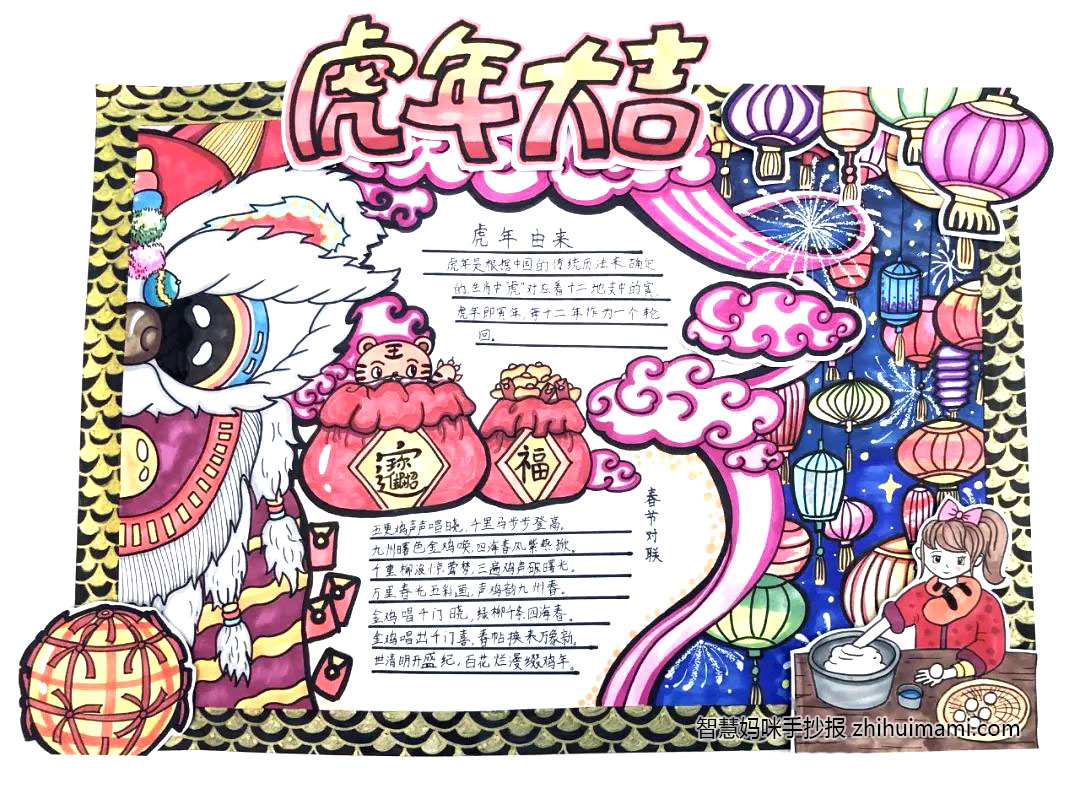 虎年大吉
虎年由来
虎年是根据中国的传统历法来确定
的,生肖中"虎"对应着十二地支中的寅,
虎年即寅年,每十二年作为一个轮
回。
王
招财进宝
福
春节对联
五更鸡声声唱晓,千里马步步登高。
九州曙色金鸡唤,四海春风紫燕掀。
千重柳浪惊莺梦,三遍鸡声破曙光。
万里春光五彩画,声鸡韵九州春。
金鸡唱千门晓,绿柳千条四海春。
金鸡唱出千门喜,春帖换来万象新。
世清明开盛纪,百花烂漫缀鸡年。
智慧妈咪手抄报 zhihuimami.com